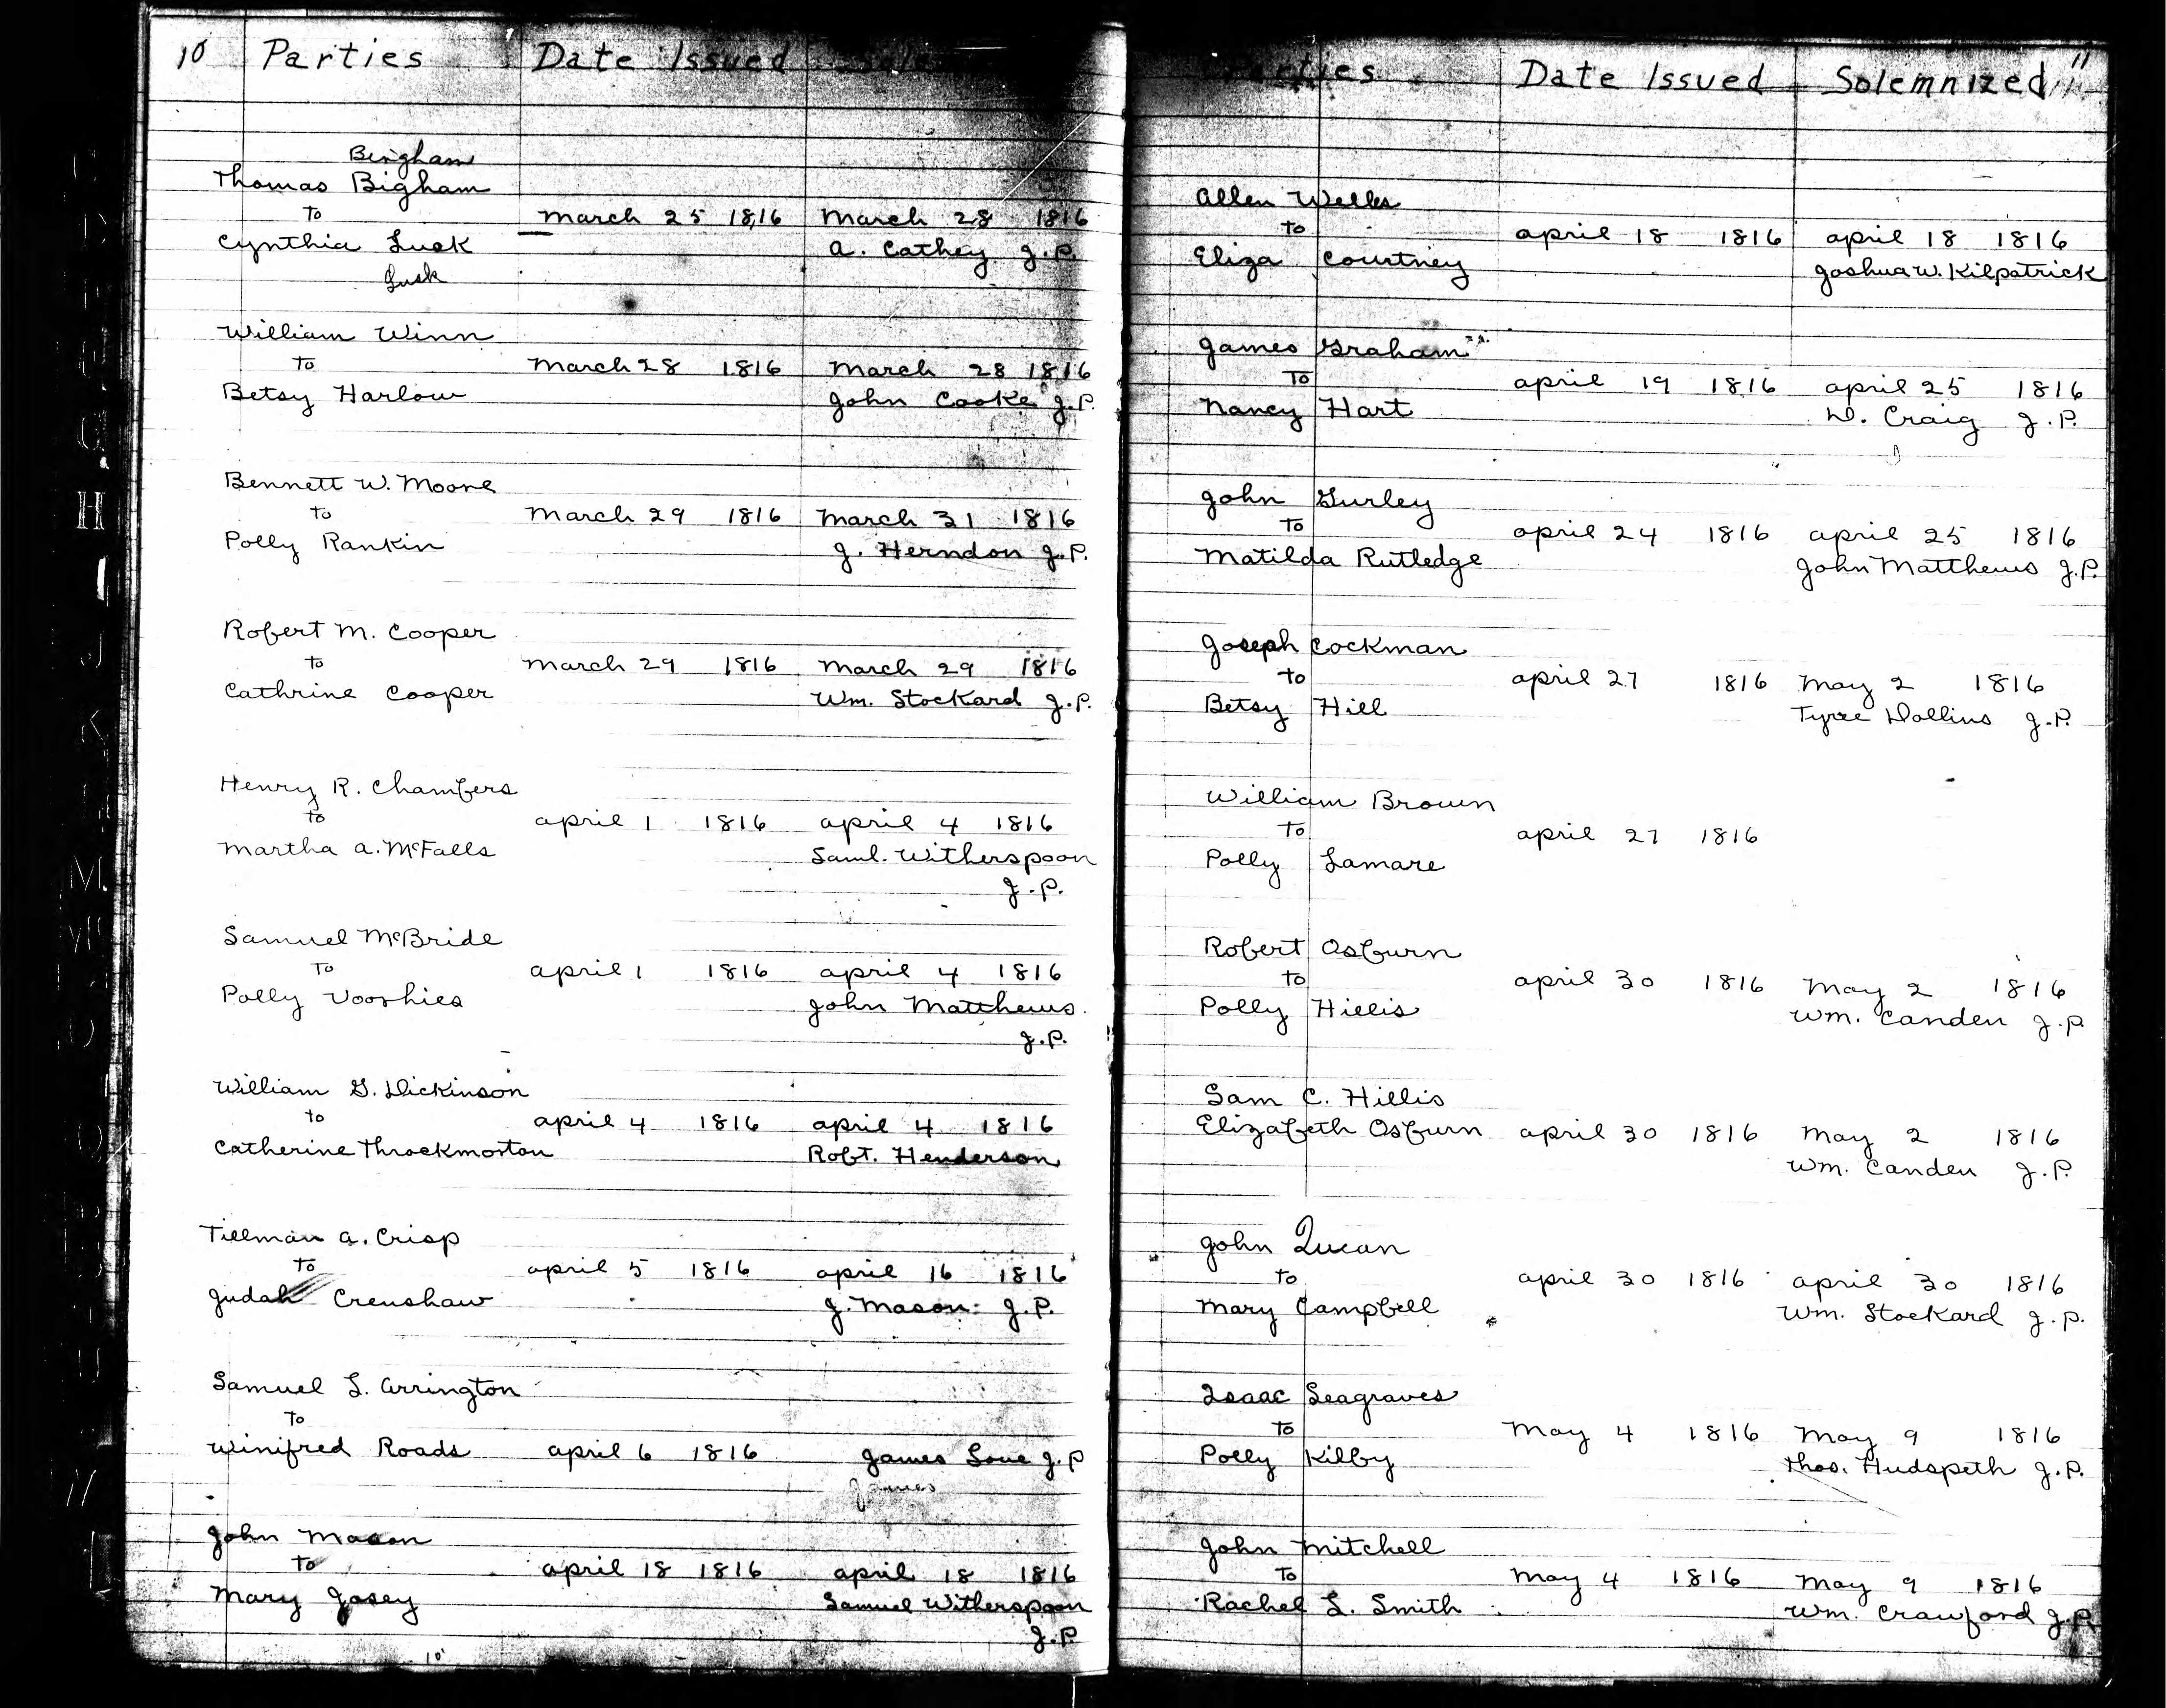 10 Parties Date Issued
Bingham
Thomas Bigham
to
March 25 1816 March 28 1816
Cynthia Lusk A. Cathey J.P.
Lusk
William Winn
to March 28 1816 March 28 1816
Betsy Harlow John Cooke J.P.
Bennett W. Moore
to March 29 1816 March 31 1816
Polly Rankin J. Herndon J.P.
Robert M. Cooper
to March 29 1816 March 29 1816
Cathrine Cooper Wm. Stockard J.P.
Henry R. Chambers
to April 1 1816 April 4 1816
Martha A. McFalls Saml. Witherspoon
J.P.
Samuel McBride
To April 1 1816 April 4 1816
Polly Voorhies John Matthews
J.P.
William G. Dickinson
to April 4 1816 April 4 1816
Catherine Throckmorton Robt. Henderson
Tillman A. Crisp
to April 5 1816 April 16 1816
Judah Crenshaw J. Mason J.P.
Samuel L. Arrington
To
Winifred Roads April 6 1816 James Love J.P
James
John Mason
To April 18 1816 April 18 1816
Mary Josey Samuel Witherspoon
J.P.
10
Parties Date Issued Solemnized 11
Allen Wells
to April 18 1816 April 18 1816
Eliza Courtney Joshua W. Kilpatrick
James Graham
To April 19 1816 April 25 1816
Nancy Hart D. Craig J.P.
John Gurley
To April 24 1816 April 25 1816
Matilda Rutledge John Matthews J.P.
Joseph Cockman
to April 27 1816 May 2 1816
Betsy Hill Tyree Dollins J.P.
William Brown
To April 27 1816
Polly Lamare
Robert Osburn
to April 30 1816 May 2 1816
Polly Hillis Wm. Canden J.P
Sam C. Hillis
Elizabeth Osburn April 30 1816 May 2 1816
Wm. Canden J.P.
John Lucan
to April 30 1816 April 30 1816
Mary Campbell Wm. Stockard J.P.
Isaac Seagraves
To May 4 1816 May 9 1816
Polly Kilby Thos. Hudspeth J.P.
John Mitchell
To May 4 1816 May 9 1816
Rachel L. Smith Wm. Crawford J.P.